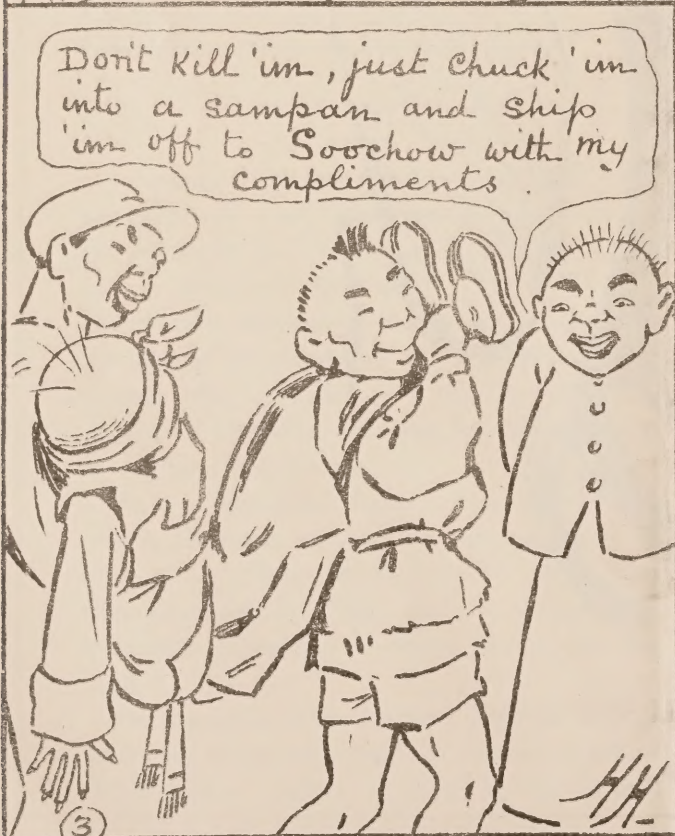 Don't Kill 'im, just chuck 'im
into a sampan and ship
'im off to Soochow with my
compliments.
HH
3